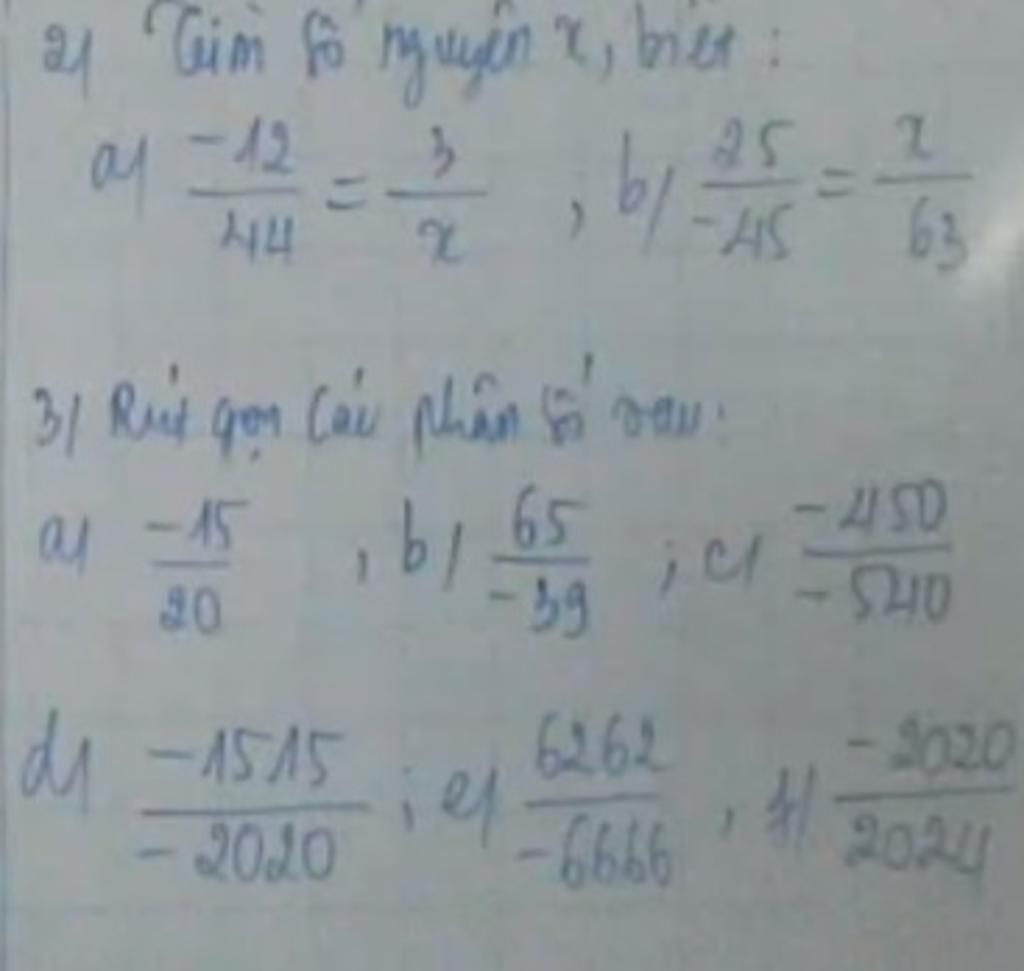 2/ Tìm số nguyên x, biết :
a/ -12/44 = 3/x , b/ 25/-45 = x/63
3/ Rút gọn các phân số sau:
a/ -15/20 , b/ 65/-39 ; c/ -450/-540
d/ -1515/-2020 ; e/ 6262/-6666 , f/ -2020/2024